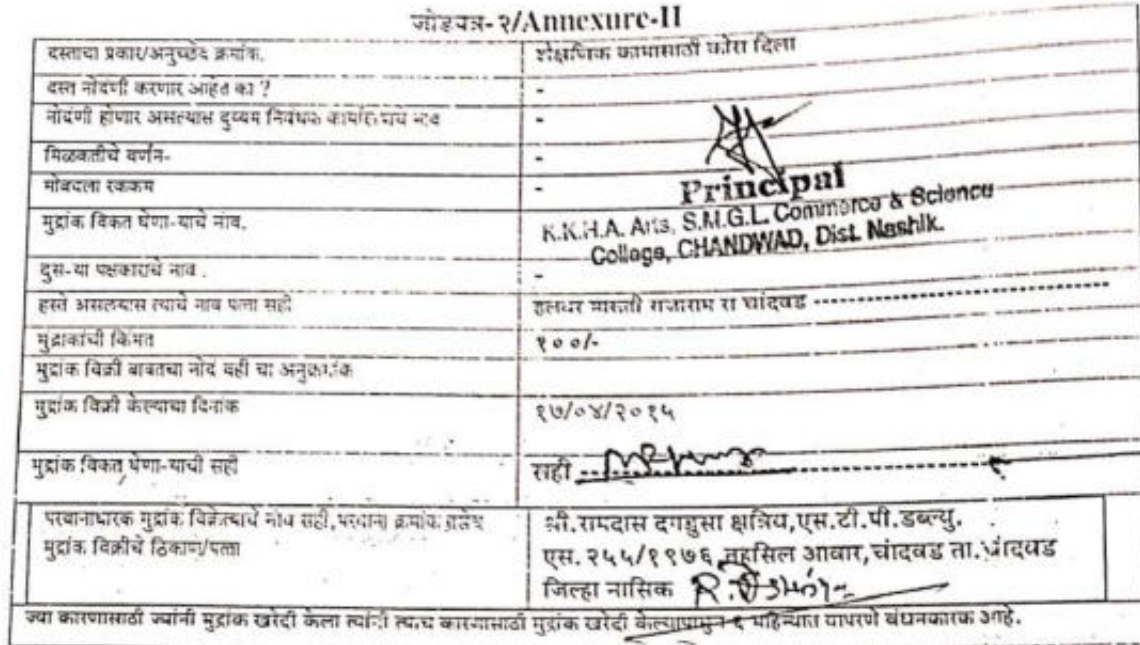 जोडपत्र-२/Annexure-II
दस्ताचा प्रकार/अनुच्छेद क्रमांक. शैक्षणिक कामासाठी कोरा दिला
दस्त नोदंणी करणार आहेत का ? -
नोदंणी होणार असल्यास दुय्यम निबंधक नाव -
मिळकतीचे वर्णन- -
मोबदला रक्कम -
Principal
मुद्रांक विकत घेणा-याचे नांव. K.K.H.A. Arts, S.M.G.L. Commerce & Science
College, CHANDWAD, Dist. Nashik.
दुस-या पक्षकाराचे नाव . -
हस्ते असलयास त्याचे नाव पत्ता सही हलवर मारुती राजाराम रा चांदवड
मुद्राकांची किंमत १००/-
मुद्रांक विक्री बाबतचा नोदं वही चा अनुक्रमांक
मुद्रांक विक्री केल्याचा दिनांक १७/०४/२०१५
मुद्रांक विकत घेणा-याची सही सही
परवानाधारक मुद्रांक विक्रेत्याचे नांव सही,परवाना क्रमांक तसेच श्री.रामदास दगडुसा क्षत्रिय,एस.टी.पी.डब्ल्यु.
मुद्रांक विक्रीचे ठिकाण/पत्ता एस. २५५/१९७६ तहसिल आवार,चांदवड ता.चांदवड
जिल्हा नासिक
ज्या कारणासाठी ज्यांनी मुद्रांक खरेदी केला त्यांनी त्याच कारणासाठी मुद्रांक खरेदी केल्यापासुन ६ महिन्यात वापरणे बंधनकारक आहे.